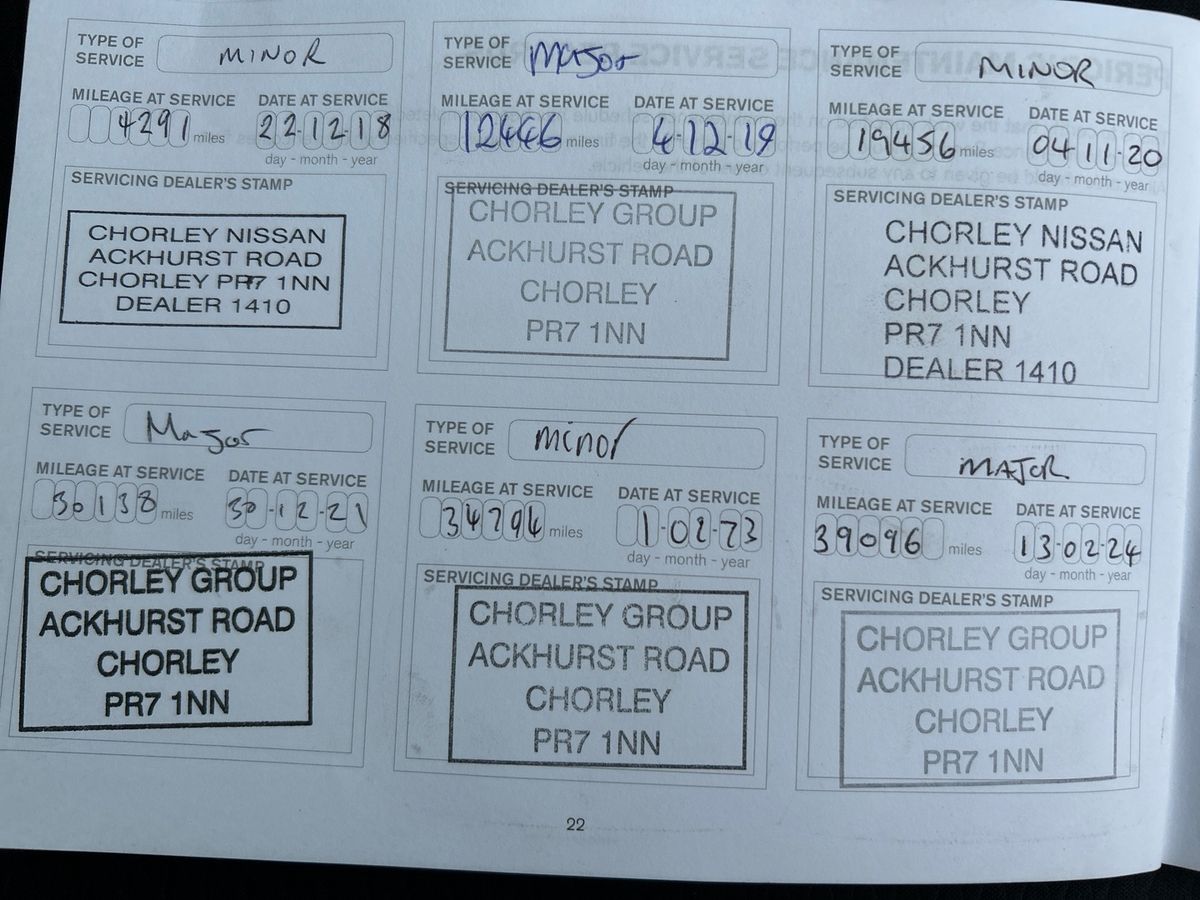 TYPE OF SERVICE MINOR
MILEAGE AT SERVICE DATE AT SERVICE
4291 miles 22-12-18
day - month - year
SERVICING DEALER'S STAMP
CHORLEY NISSAN
ACKHURST ROAD
CHORLEY PR7 1NN
DEALER 1410
TYPE OF SERVICE Major
MILEAGE AT SERVICE DATE AT SERVICE
12446 miles 4-12-19
day - month - year
SERVICING DEALER'S STAMP
CHORLEY GROUP
ACKHURST ROAD
CHORLEY
PR7 1NN
TYPE OF SERVICE MINOR
MILEAGE AT SERVICE DATE AT SERVICE
19456 miles 04 11-20
day - month - year
SERVICING DEALER'S STAMP
CHORLEY NISSAN
ACKHURST ROAD
CHORLEY
PR7 1NN
DEALER 1410
TYPE OF SERVICE Major
MILEAGE AT SERVICE DATE AT SERVICE
30138 miles 30-12-21
day - month - year
SERVICING DEALER'S STAMP
CHORLEY GROUP
ACKHURST ROAD
CHORLEY
PR7 1NN
TYPE OF SERVICE minor
MILEAGE AT SERVICE DATE AT SERVICE
34794 miles 1-02-23
day - month - year
SERVICING DEALER'S STAMP
CHORLEY GROUP
ACKHURST ROAD
CHORLEY
PR7 1NN
TYPE OF SERVICE MAJOR
MILEAGE AT SERVICE DATE AT SERVICE
39096 miles 13-02-24
day - month - year
SERVICING DEALER'S STAMP
CHORLEY GROUP
ACKHURST ROAD
CHORLEY
PR7 1NN
22